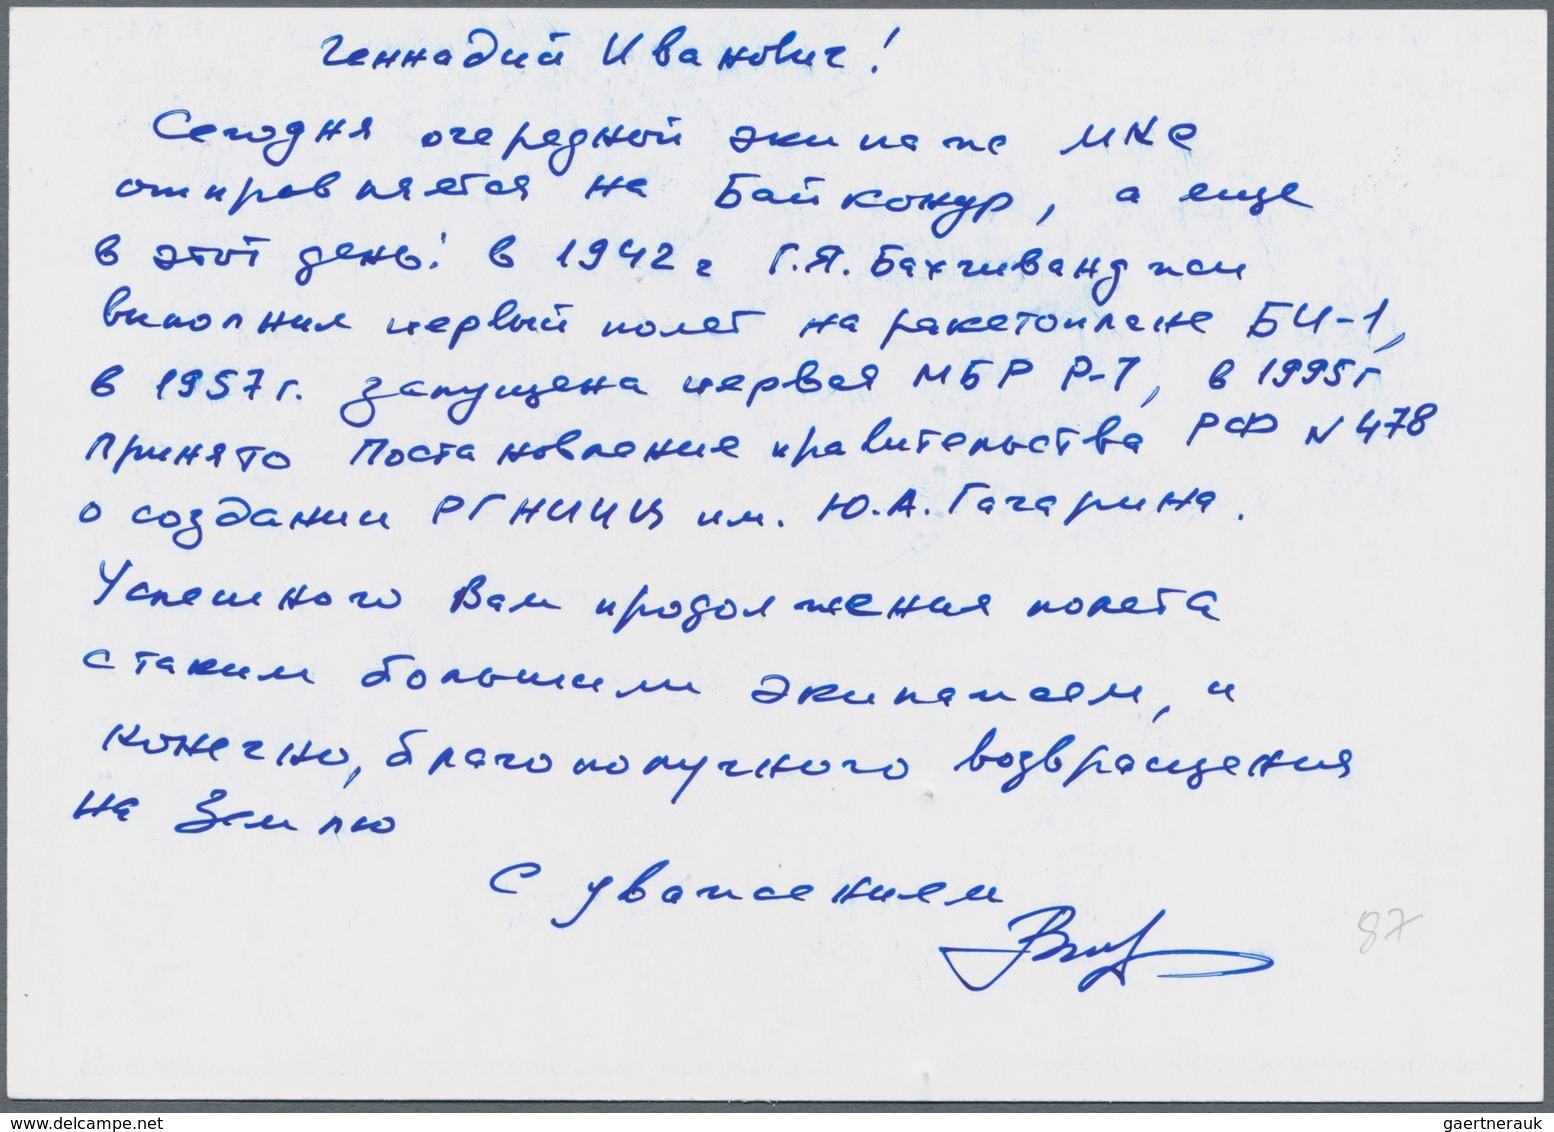 Геннадий Иванович!
Сегодня очередной экипаж МКС
отправляется на Байконур, а еще
в этот день: в 1942 г Г.Я. Бахчиванджи
выполнил первый полет на ракетоплане БИ-1,
в 1957 г. запущена первая МБР Р-7, в 1995 г
принято Постановление правительства РФ N 478
о создании РГНИИЦ им. Ю.А. Гагарина.
Успешного Вам продолжения полета
с таким большим экипажем, и
конечно, благополучного возвращения
на Землю
С уважением
87
gaertnerauk